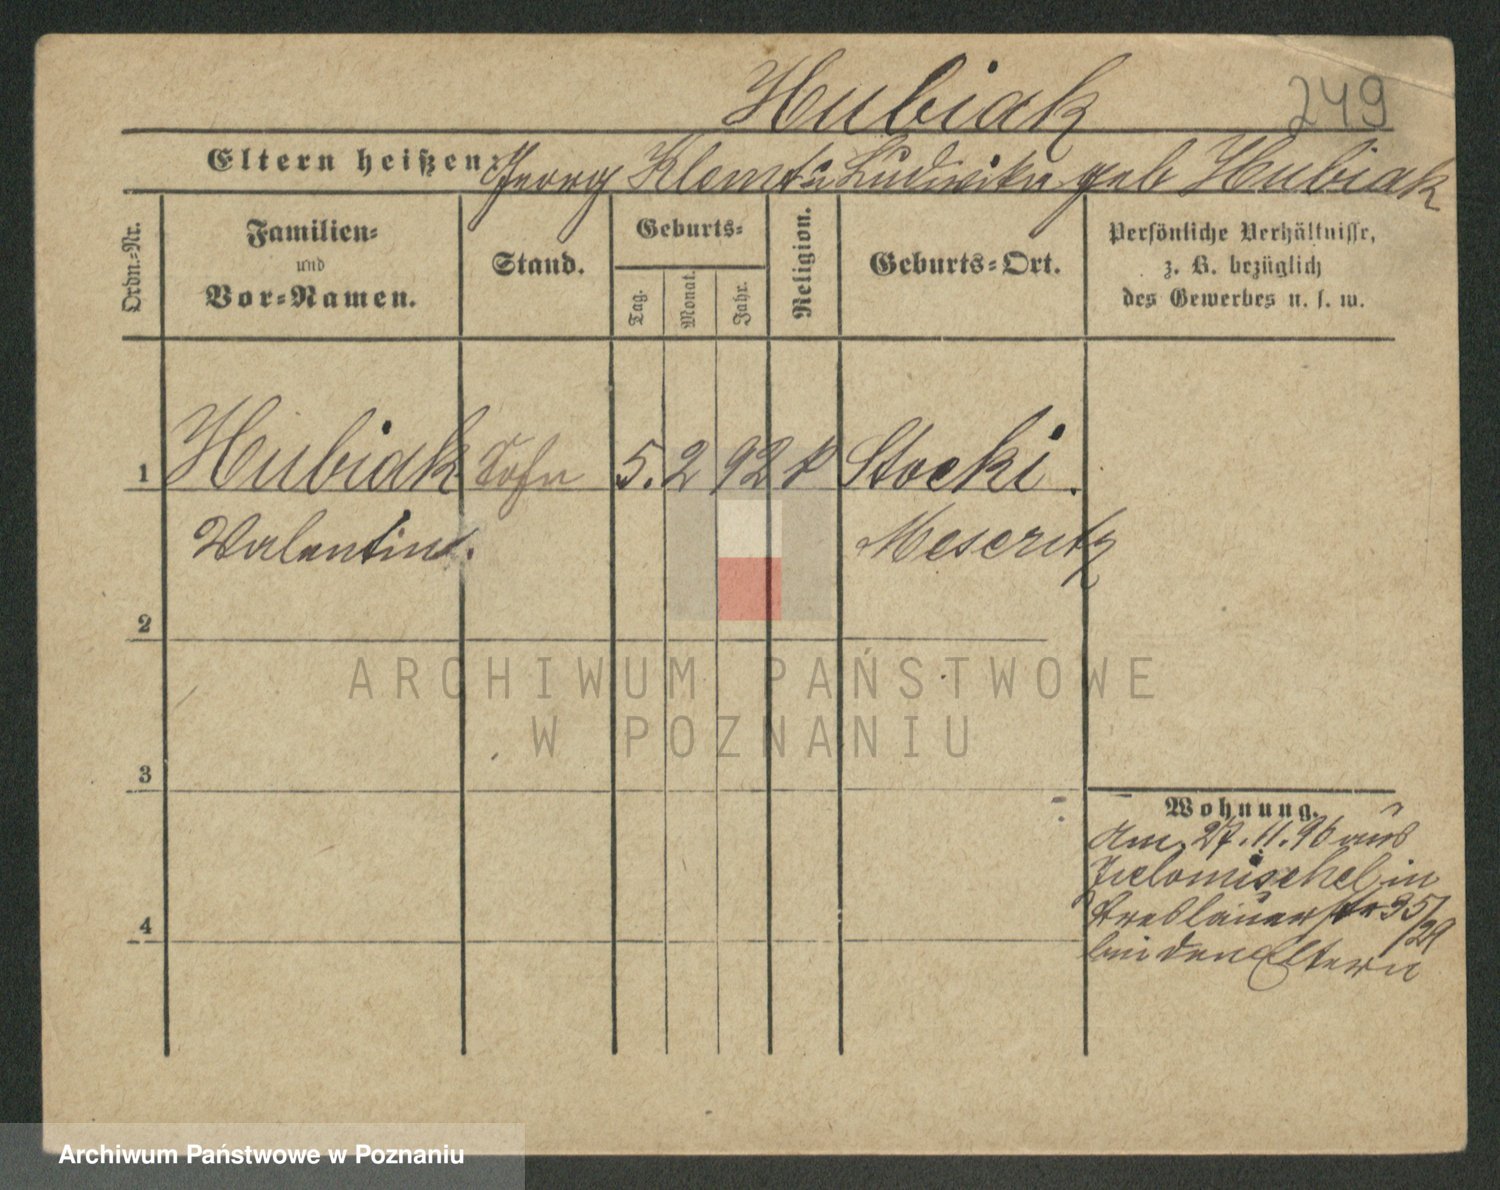 Hubiak 249
Eltern heißen: Georg Klemt u Ludwika geb Hubiak
Ordn.-Nr.
Familien-
und
Vor-Namen.
Stand.
Geburts-
Tag.
Monat.
Jahr.
Religion.
Geburts-Ort.
Persönliche Verhältnisse,
z. B. bezüglich
des Gewerbes u. s. w.
1 Hubiak Sohn 5. 2 92 k Stocki.
Valentin. Meseritz
2
ARCHIWUM PAŃSTWOWE
W POZNANIU
3
Wohnung.
Am 27.11.96 aus
in
4 Breslauerstr 35/29
bei den Eltern
Archiwum Państwowe w Poznaniu